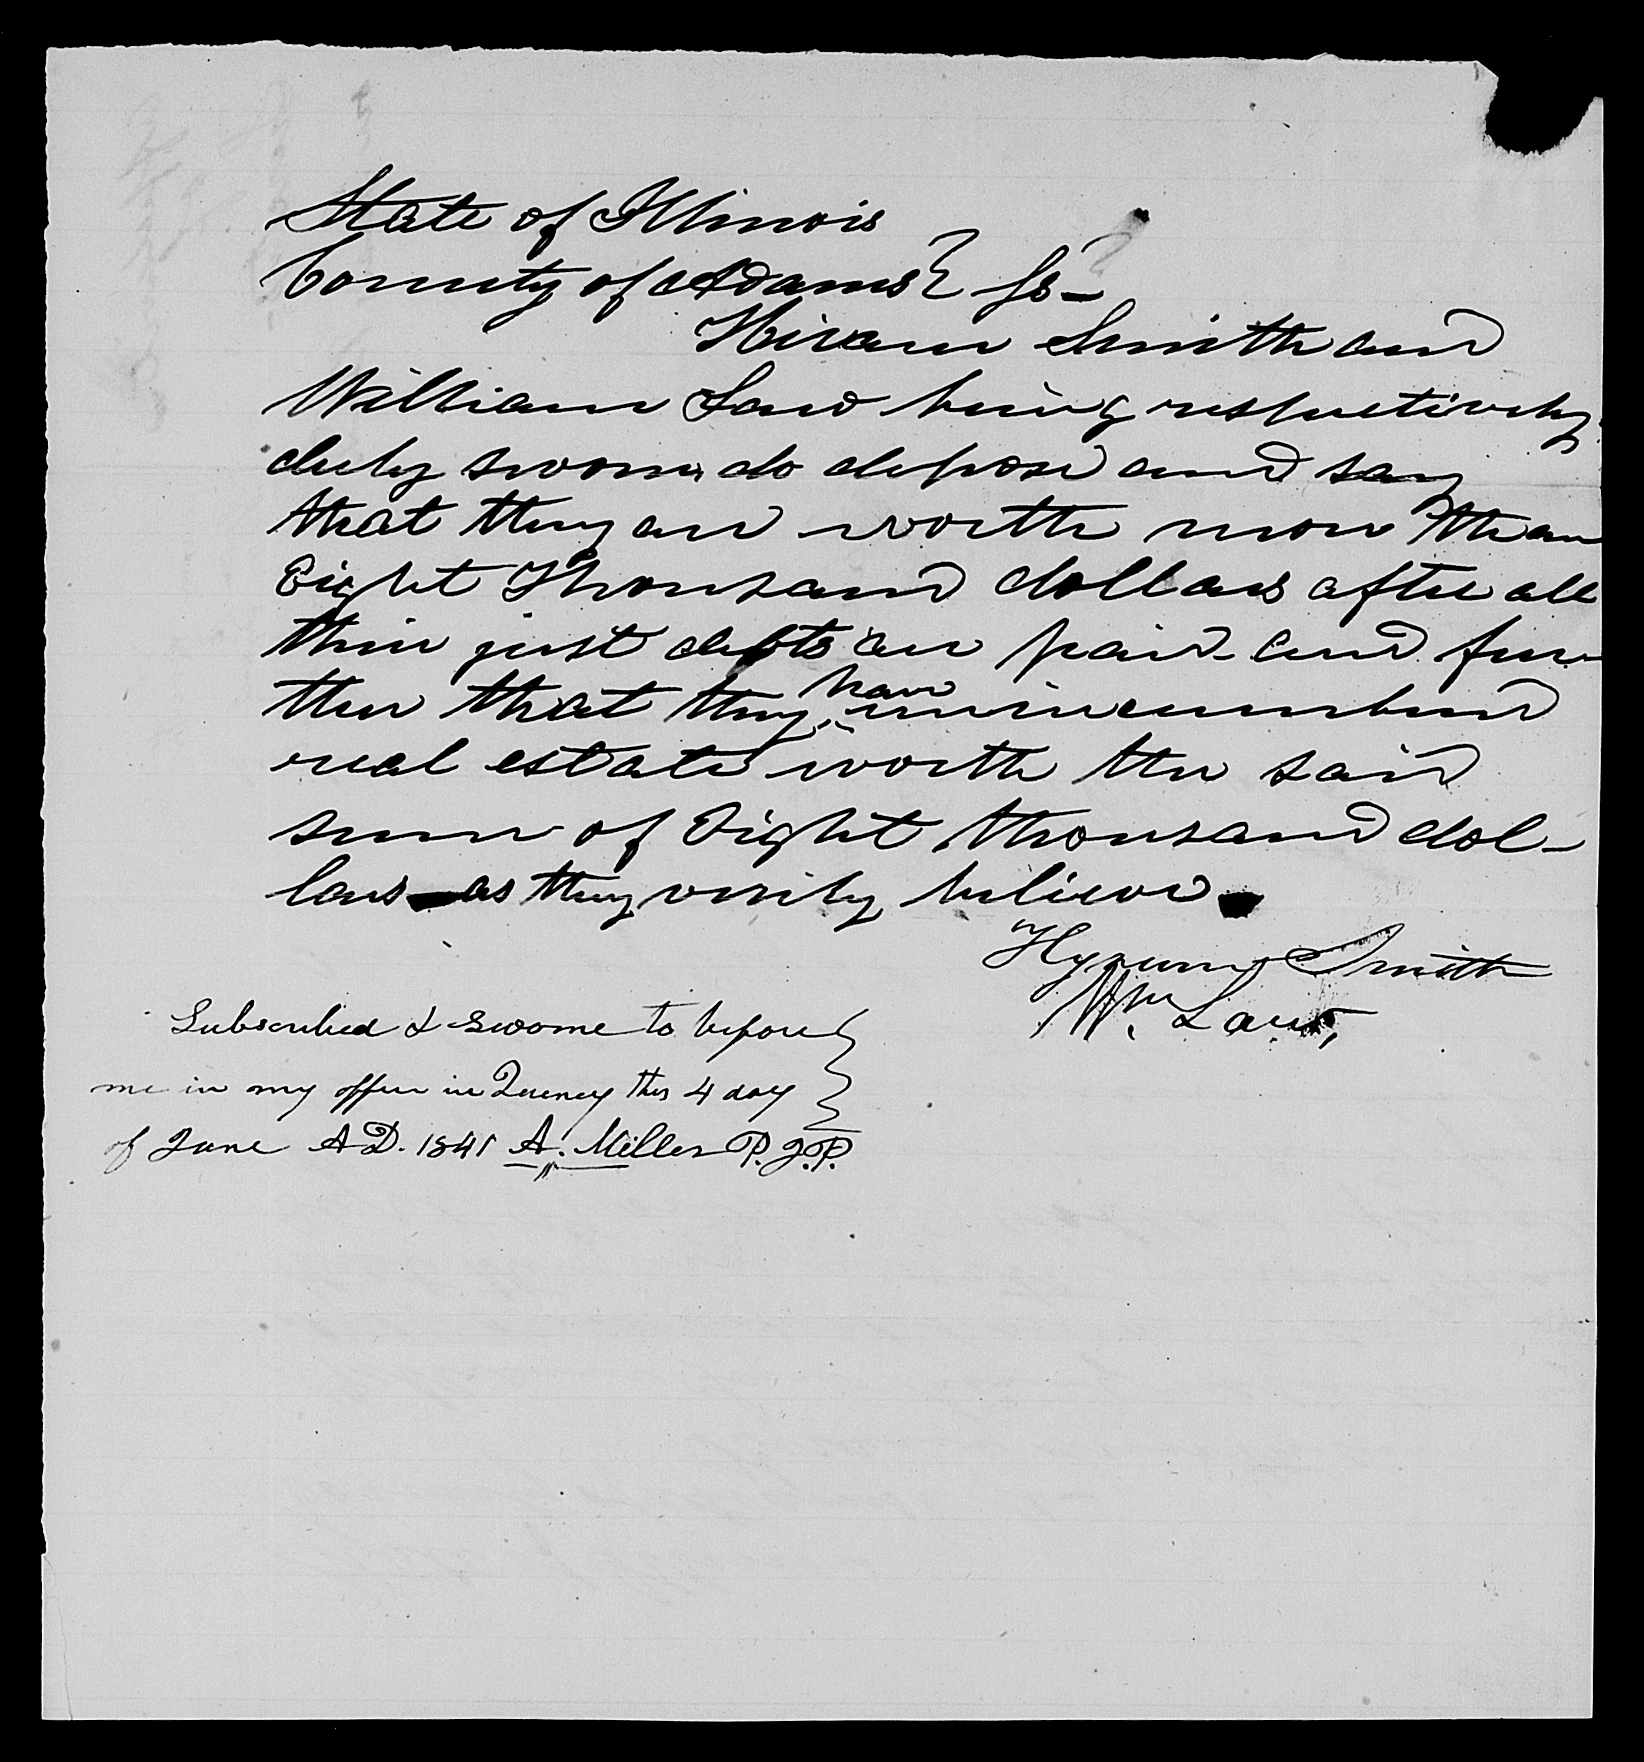 State of Illinois
County of Adams } Ss—
Hiram Smith and
William Law being respectively
duly sworn, do depose and say
that they are worth more than
Eight Thousand dollars after all
their just debts are paid and fur-
ther that they have unincumbered
real estate worth the said
sum of Eight thousand dol-
lars—as they verily believe.
Hyrum Smith
Wm. Law,
Subscribed & sworne to before
me in my office in Quincy this 4 day
of June A D. 1841 A. Miller P. J. P.